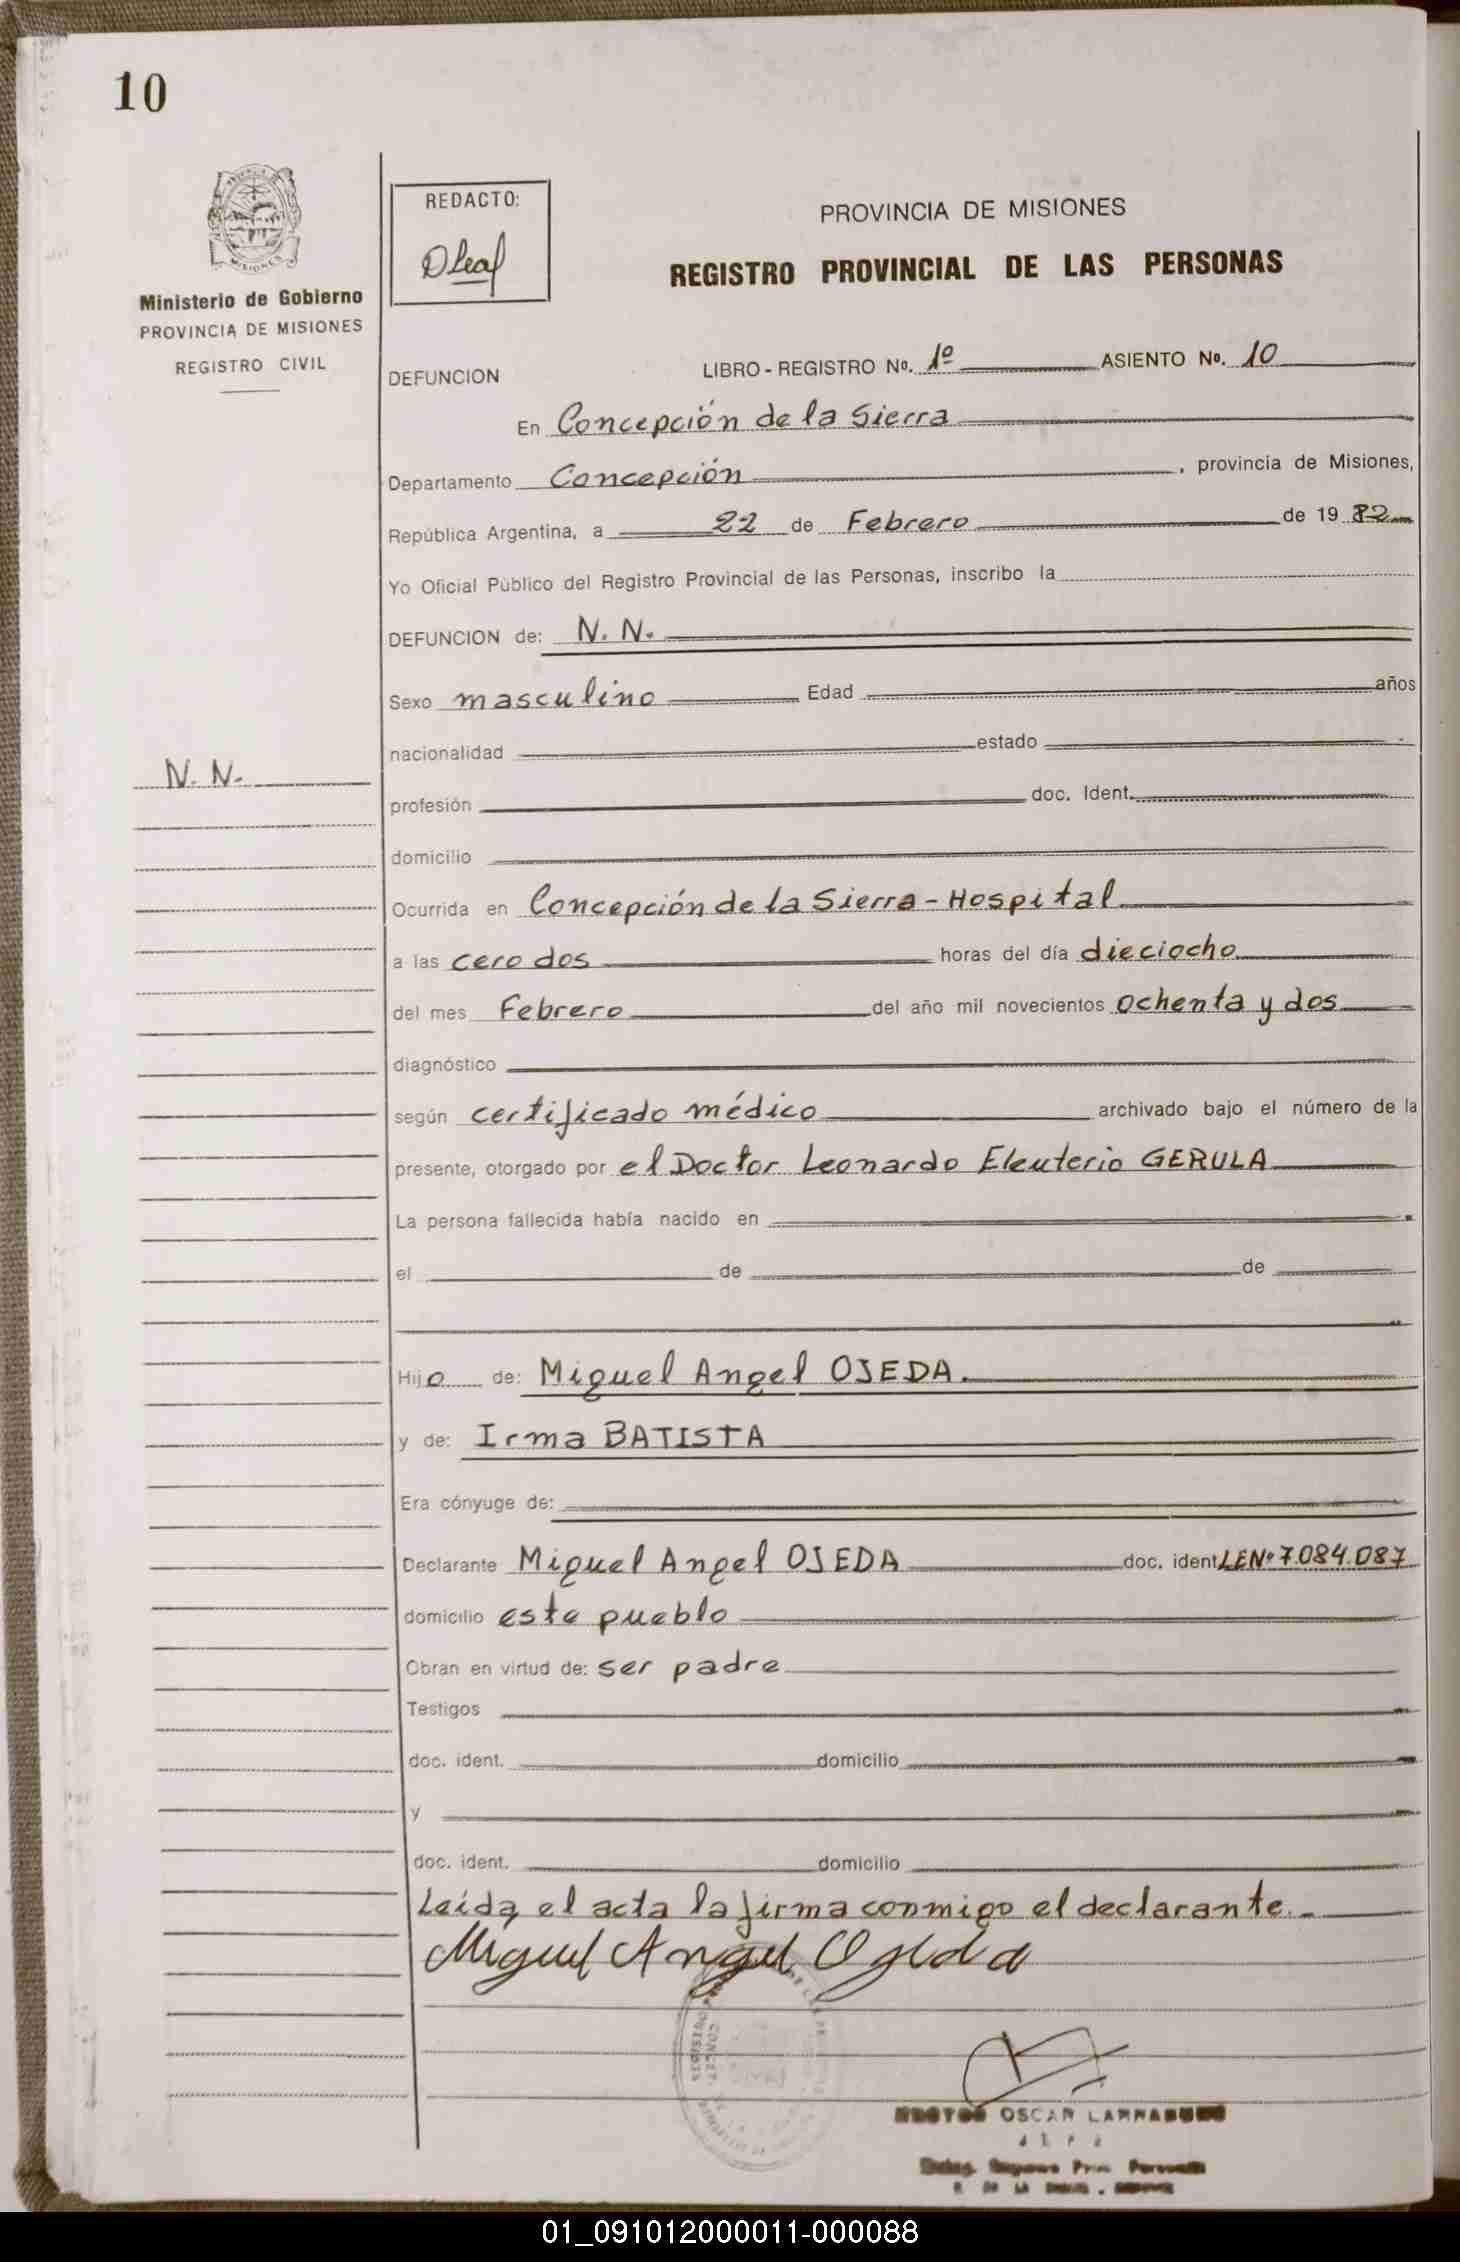 10
MISIONES
Ministerio de Gobierno
PROVINCIA DE MISIONES
REGISTRO CIVIL
REDACTO:
DLeal
PROVINCIA DE MISIONES
REGISTRO PROVINCIAL DE LAS PERSONAS
DEFUNCION LIBRO - REGISTRO No. 1º ASIENTO No. 10
En Concepción de la Sierra
Departamento Concepción , provincia de Misiones,
República Argentina, a 22 de Febrero de 19 82
Yo Oficial Público del Registro Provincial de las Personas, inscribo la
DEFUNCION de: N. N.
Sexo masculino Edad años
nacionalidad estado
N. N.
profesión doc. Ident.
domicilio
Ocurrida en Concepción de la Sierra - Hospital
a las cero dos horas del día dieciocho
del mes Febrero del año mil novecientos ochenta y dos
diagnóstico
según certificado médico archivado bajo el número de la
presente, otorgado por el Doctor Leonardo Eleuterio GERULA
La persona fallecida había nacido en
el de de
Hijo de: Miguel Angel OJEDA.
y de: Irma BATISTA
Era cónyuge de:
Declarante Miguel Angel OJEDA doc. ident. LENº 7.084.087
domicilio este pueblo
Obran en virtud de: ser padre
Testigos
doc. ident. domicilio
y
doc. ident. domicilio
Leída el acta la firma conmigo el declarante.-
Miguel Angel Ogeda
OSCAR
01_091012000011-000088